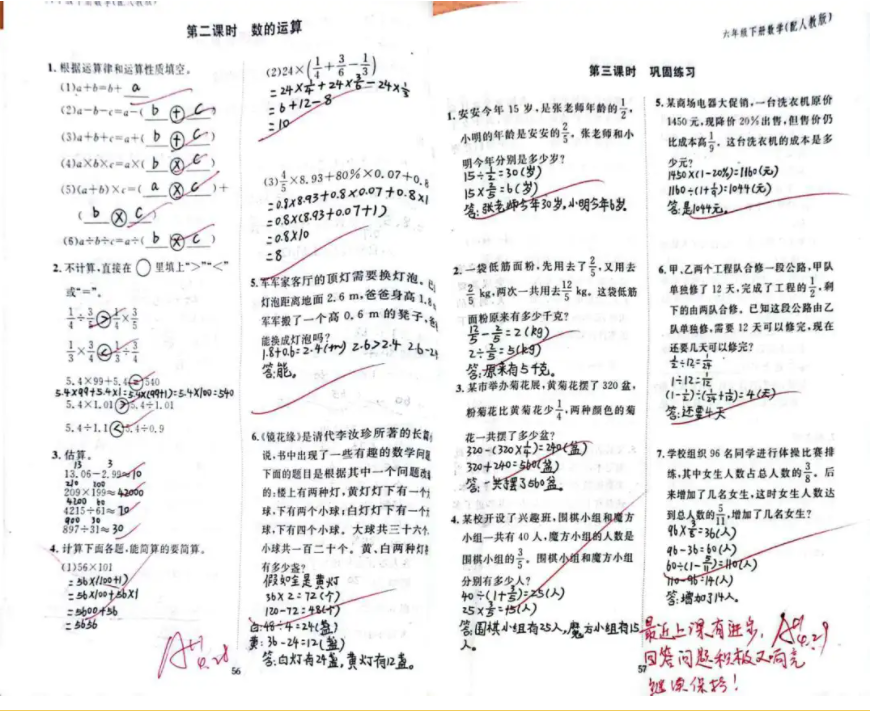 第二课时 数的运算
1.根据运算律和运算性质填空。
(1)a+b=b+ a
(2)a-b-c=a-( b + c )
(3)a+b+c=a+( b + c )
(4)a×b×c=a×( b × c )
(5)(a+b)×c=( a × c )+
( b × c )
(6)a÷b÷c=a÷( b × c )
2.不计算,直接在○里填上">""<"
或"="。
1/4÷3/5 > 1/4×3/5
1/3×3/4 < 1/3÷3/4
5.4×99+5.4 = 540
5.4×99+5.4×1=5.4×(99+1)=5.4×100=540
5.4×1.01 > 5.4÷1.01
5.4÷1.1 < 5.4÷0.9
3.估算。
13 3
13.06-2.99≈10
210 200
209×199≈42000
4200 60
4215÷61≈70
900 30
897÷31≈30
4.计算下面各题,能简算的要简算。
(1)56×101
=56×(100+1)
=56×100+56×1
=5600+56
=5656
A+
4.28
(2)24×(1/4+3/6-1/3)
=24×1/4+24×3/6-24×1/3
=6+12-8
=10
(3)4/5×8.93+80%×0.07+0.8
=0.8×8.93+0.8×0.07+0.8×1
=0.8×(8.93+0.07+1)
=0.8×10
=8
5.军军家客厅的顶灯需要换灯泡。
灯泡距离地面2.6 m,爸爸身高1.8
军军搬了一个高0.6 m的凳子,爸
能换成灯泡吗?
1.8+0.6=2.4(m) 2.6>2.4 2.6-2.4
答:能。
6.《镜花缘》是清代李汝珍所著的长篇
说,书中出现了一些有趣的数学问
下面的题目是根据其中一个问题改
的:楼上有两种灯,黄灯灯下有一个
球,下有两个小球;白灯灯下有一个
球,下有四个小球。大球共三十六个
小球共一百二十个。黄、白两种灯
有多少盏?
假如全是黄灯
36×2=72(个)
120-72=48(个)
白:48÷4=24(盏)
黄:36-24=12(盏)
答:白灯有24盏,黄灯有12盏。
56
六年级下册数学(配人教版)
第三课时 巩固练习
1.安安今年15岁,是张老师年龄的1/2,
小明的年龄是安安的2/5。张老师和小
明今年分别是多少岁?
15÷1/2=30(岁)
15×2/5=6(岁)
答:张老师今年30岁,小明今年6岁
2.一袋低筋面粉,先用去了2/5,又用去
2/5 kg,两次一共用去12/5 kg。这袋低筋
面粉原来有多少千克?
12/5-2/5=2(kg)
2÷2/5=5(kg)
答:原来有5千克。
3.某市举办菊花展,黄菊花摆了320盆,
粉菊花比黄菊花少1/4,两种颜色的菊
花一共摆了多少盆?
320-(320×1/4)=240(盆)
320+240=560(盆)
答:一共摆了560盆。
4.某校开设了兴趣班,围棋小组和魔方
小组一共有40人,魔方小组的人数是
围棋小组的3/5。围棋小组和魔方小组
分别有多少人?
40÷(1+3/5)=25(人)
25×3/5=15(人)
答:围棋小组有25人,魔方小组有15
人。
5.某商场电器大促销,一台洗衣机原价
1450元,现降价20%出售,但售价仍
比成本高1/9。这台洗衣机的成本是多
少元?
1450×(1-20%)=1160(元)
1160÷(1+1/9)=1044(元)
答:是1044元。
6.甲、乙两个工程队合修一段公路,甲队
单独修了12天,完成了工程的1/2,剩
下的由两队合修。已知这段公路由乙
队单独修,需要12天可以修完,现在
还要几天可以修完?
1/2÷12=1/24
1÷12=1/12
(1-1/2)÷(1/24+1/12)=4(天)
答:还要4天
7.学校组织96名同学进行体操比赛排
练,其中女生人数占总人数的3/8。后
来增加了几名女生,这时女生人数达
到总人数的5/11,增加了几名女生?
96×3/8=36(人)
96-36=60(人)
60÷(1-5/11)=110(人)
110-96=14(人)
答:增加了14人。
最近上课有进步, A+
4.29
回答问题积极又响亮
继续保持!
57